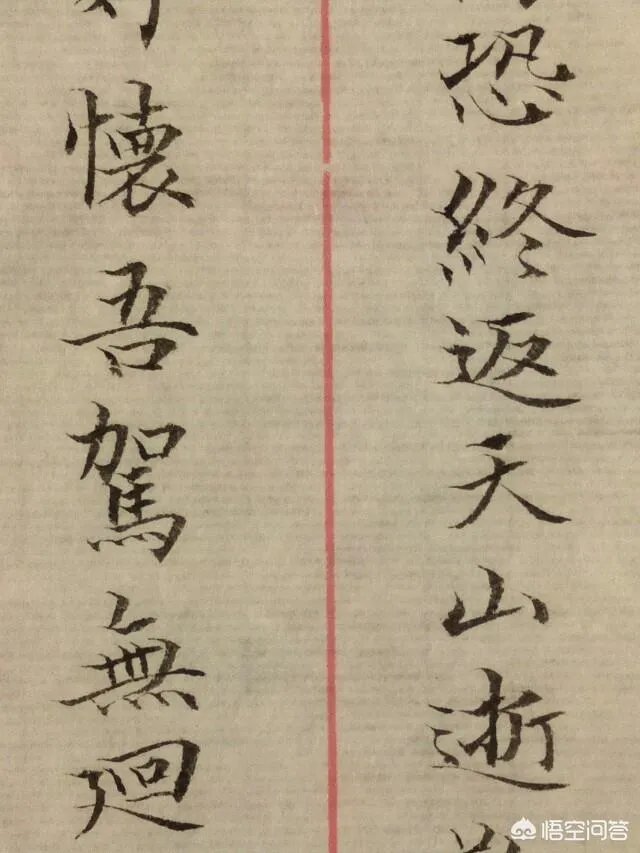 恐終返天山逝
懷吾駕無迴
悟空问答